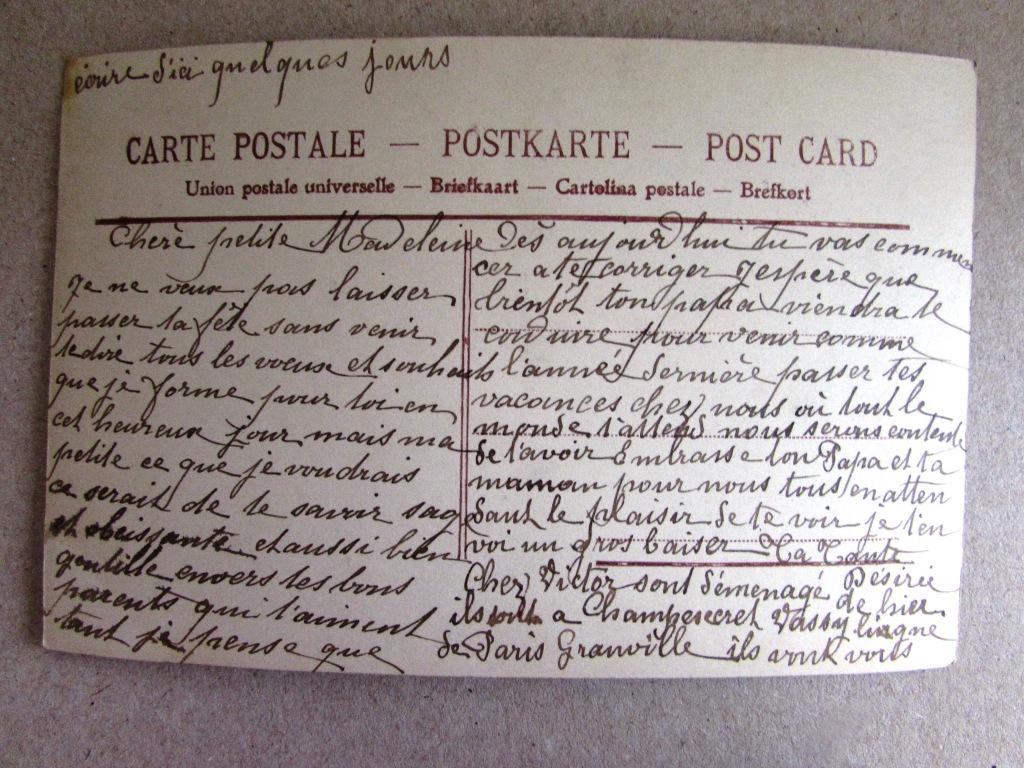 écrire d'ici quelques jours
CARTE POSTALE — POSTKARTE — POST CARD
Union postale universelle — Briefkaart — Cartolina postale — Brefkort
Cherè petite Madeleine
Je ne veux pas laisser
passer ta fête sans venir
te dire tous les voeux et souhaits
que je forme pour toi en
cet heureux jour mais ma
petite ce que je voudrais
ce serait de te savoir sag
et obeissante et aussi bien
gentille envers tes bons
parents qui t'aiment
tant je pense que
Dès aujourd'hui tu vas commen
cer a te corriger J'espère que
bientôt ton papa viendra te
conduire pour venir comme
l'anneé dernière passer tes
vacances chez nous où tout le
monde t'attend nous serons contents
de t'avoir Embrasse ton Papa et ta
maman pour nous tous en atten
dant le plaisir de te voir je t'en
voi un gros baiser Ta Tante
Désirie
Chez Victor sont déménagé de hier
ils sont a Champsecret Vassy liegne
de Paris Granville ils vont vous